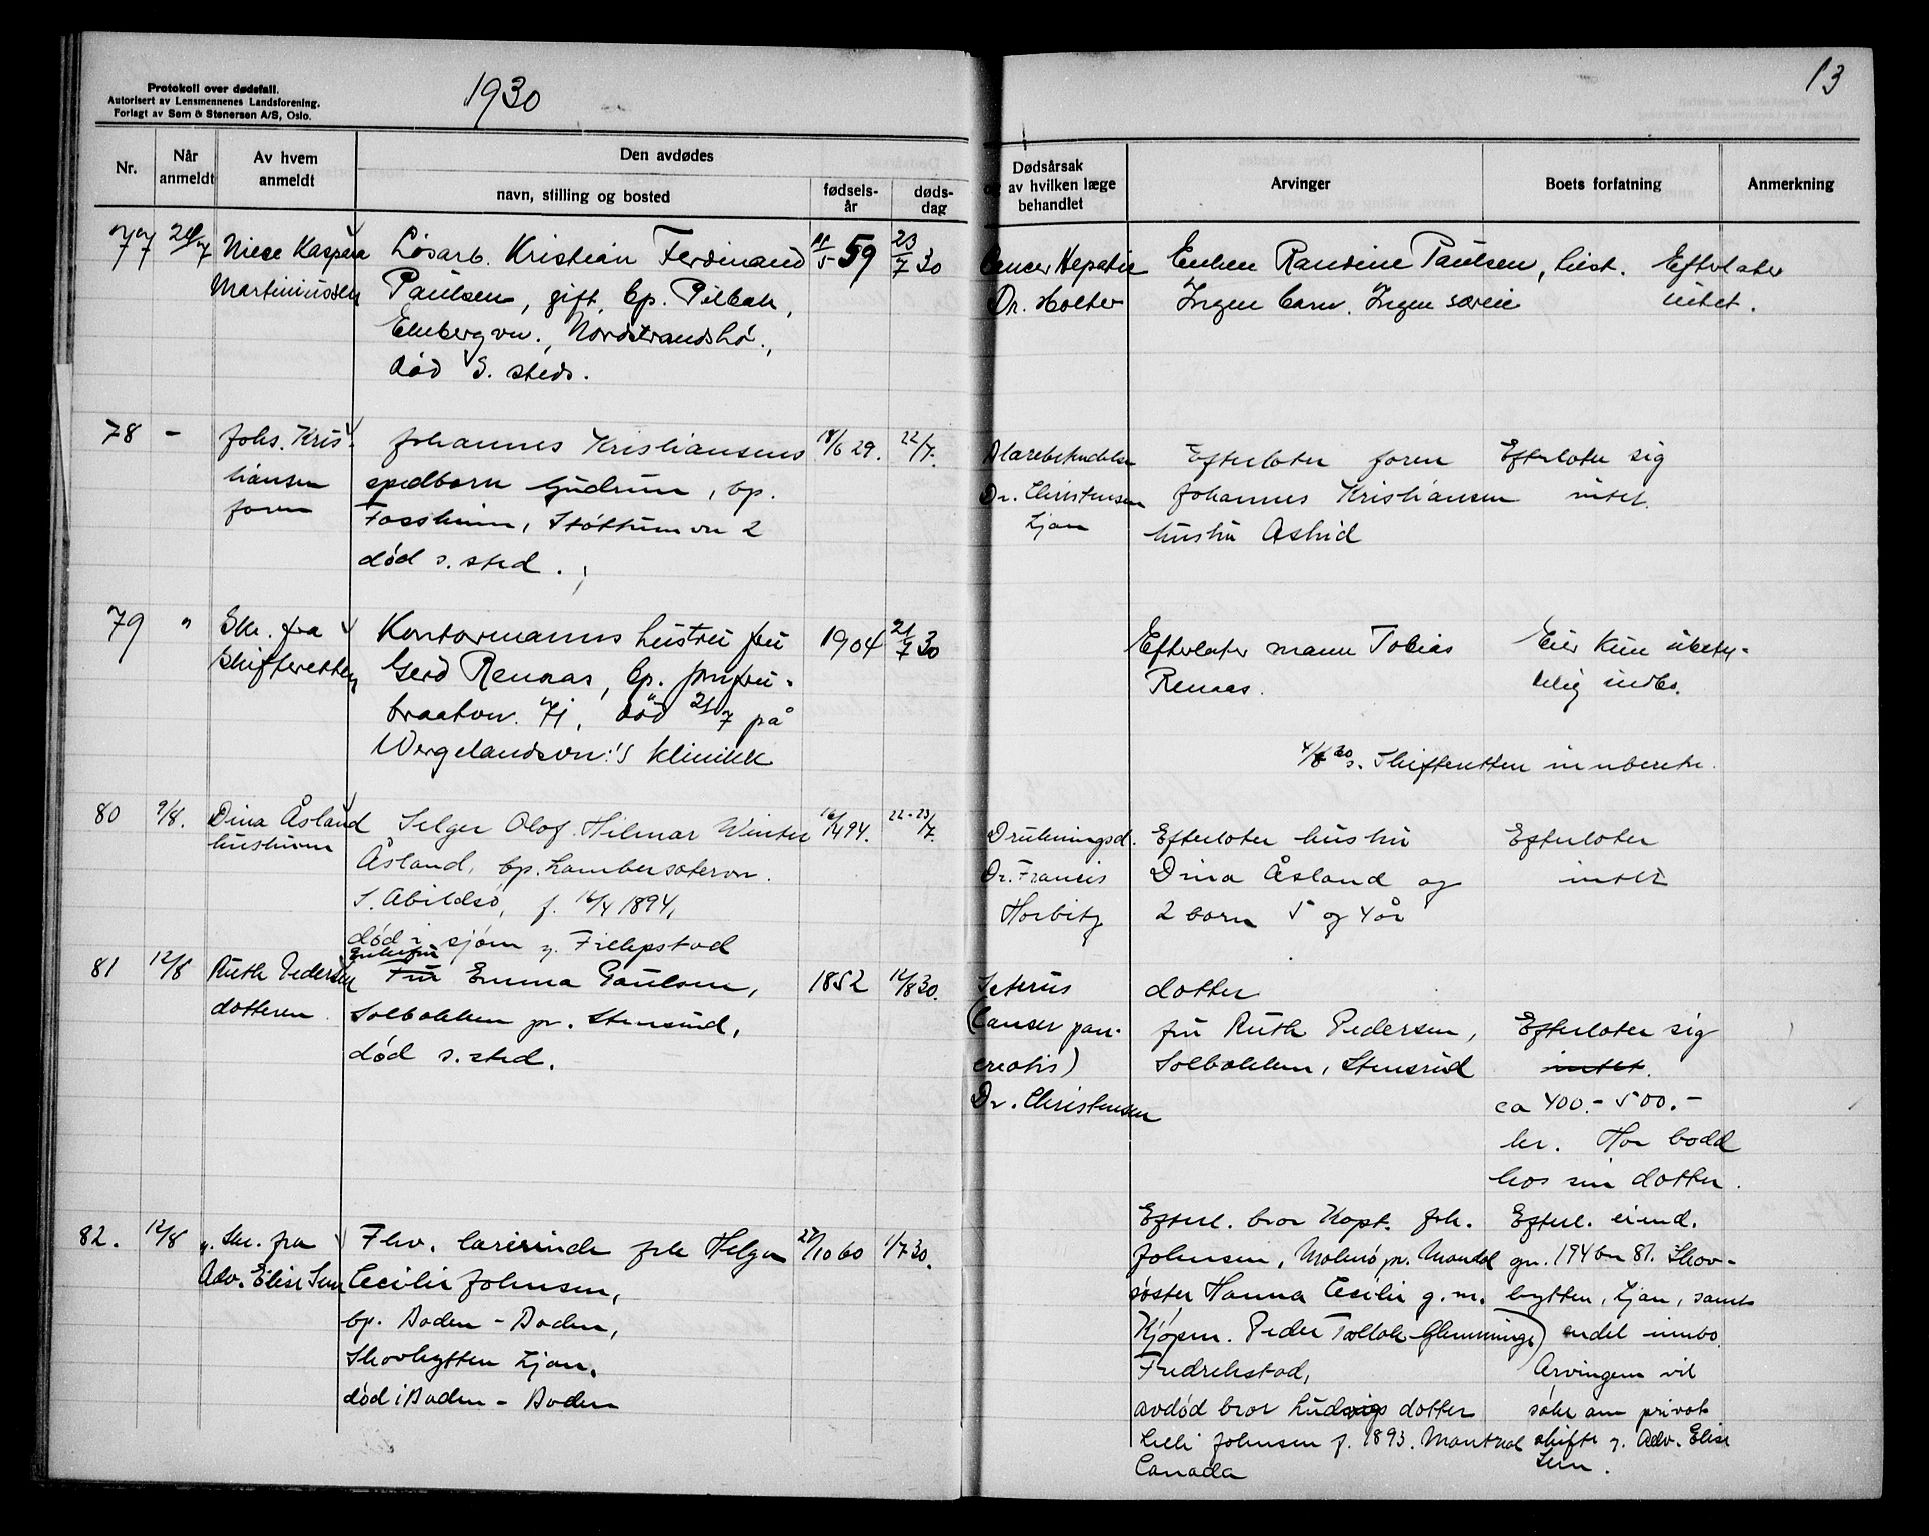 Protokoll over dødsfall.
Autorisert av Lensmennenes Landsforening.
Forlagt av Sem & Stenersen A/S, Oslo.
1930
13
Nr.
Når anmeldt
Av hvem anmeldt
Den avdødes
navn, stilling og bosted
fødsels-år
døds-dag
Dødsårsak
og av hvilken læge
behandlet
Arvinger
Boets forfatning
Anmerkning
77
Niese Kaspara
Martiniussen
Løsarb. Kristian Ferdinand
Paulsen, gift, bp. Pilbak,
Ekebergvn., Nordstrandshø.,
død s. steds.
11/5 59
23/7 30
Cancer Hepatis
Dr. Holter
Enken Randine Paulsen, his t.
Ingen barn. Ingen særeie
Efterlater
intet.
78 -
Johs. Kris-
tiansen
faren
Johannes Kristiansens
spedbarn Gudrun, bp.
Fossheim, Støttumvn 2
død s. sted.
18/6 29.
22/7.
Dr. Christensen
Ljan
Efterlater faren
Johannes Kristiansen
hustru Astrid
Efterlater sig
intet.
79 "
Skr. fra
skifteretten
Kontormanns hustru fru
Gerd Renaas, bp. Jomfru-
braatvn. 71, død 21/7 på
Wergelandsvn.'s klinikk
1904
21/7 30
Efterlater mann Tobias
Renaas.
Eier kun ubety-
delig indbo.
4/8 30 s. Skifteretten innberetn.
80 9/8.
Dina Åsland
hustruen
Selger Olof Hilmar Winter
Åsland, bp. Lambersetervn.
S. Abildsø, f. 16/4 1894,
død i sjøen v. Filipstad
16/4 94.
22-23/7.
Drukningsd.
Dr. Francis
Harbitz
Efterlater hustru
Dina Åsland og
2 barn 5 og 4 år
Efterlater
intet
81 12/8
Ruth Pedersen
datteren
Enkefru
Fru Emma Paulsen,
Solbakken pr. Stensrud,
død s. sted.
1852
12/8 30.
Icterus
(Cancer pan-
creatis)
Dr. Christensen
datter
fru Ruth Pedersen,
Solbakken, Stensrud
Efterlater sig
intet.
ca 400.- 500.-
kr. Har bodd
hos sin datter.
82. 12/8
Skr. fra
Adv. Elise Sem
Fhv. lærerinde frk Helga
Cecilie Johnsen,
bp. Baden - Baden,
Skovhytten Ljan.
død i Baden - Baden
27/10 60
1/7 30.
Efterl. bror Kapt. Joh.
Johnsen, Malmø pr. Mandal
søster Hanna Cecilie g. m.
Kjøpm. Peder Tollak Glemminge)
Fredrikstad,
avdød bror Ludvigs datter
Lilli Johnsen f. 1893. Montreal
Canada
Efterl. eiend.
gn. 194 bn 81. Skov-
hytten, Ljan, samt
endel innbo.
Arvingene vil
søke om privat
skifte v. Adv. Elise
Sem.